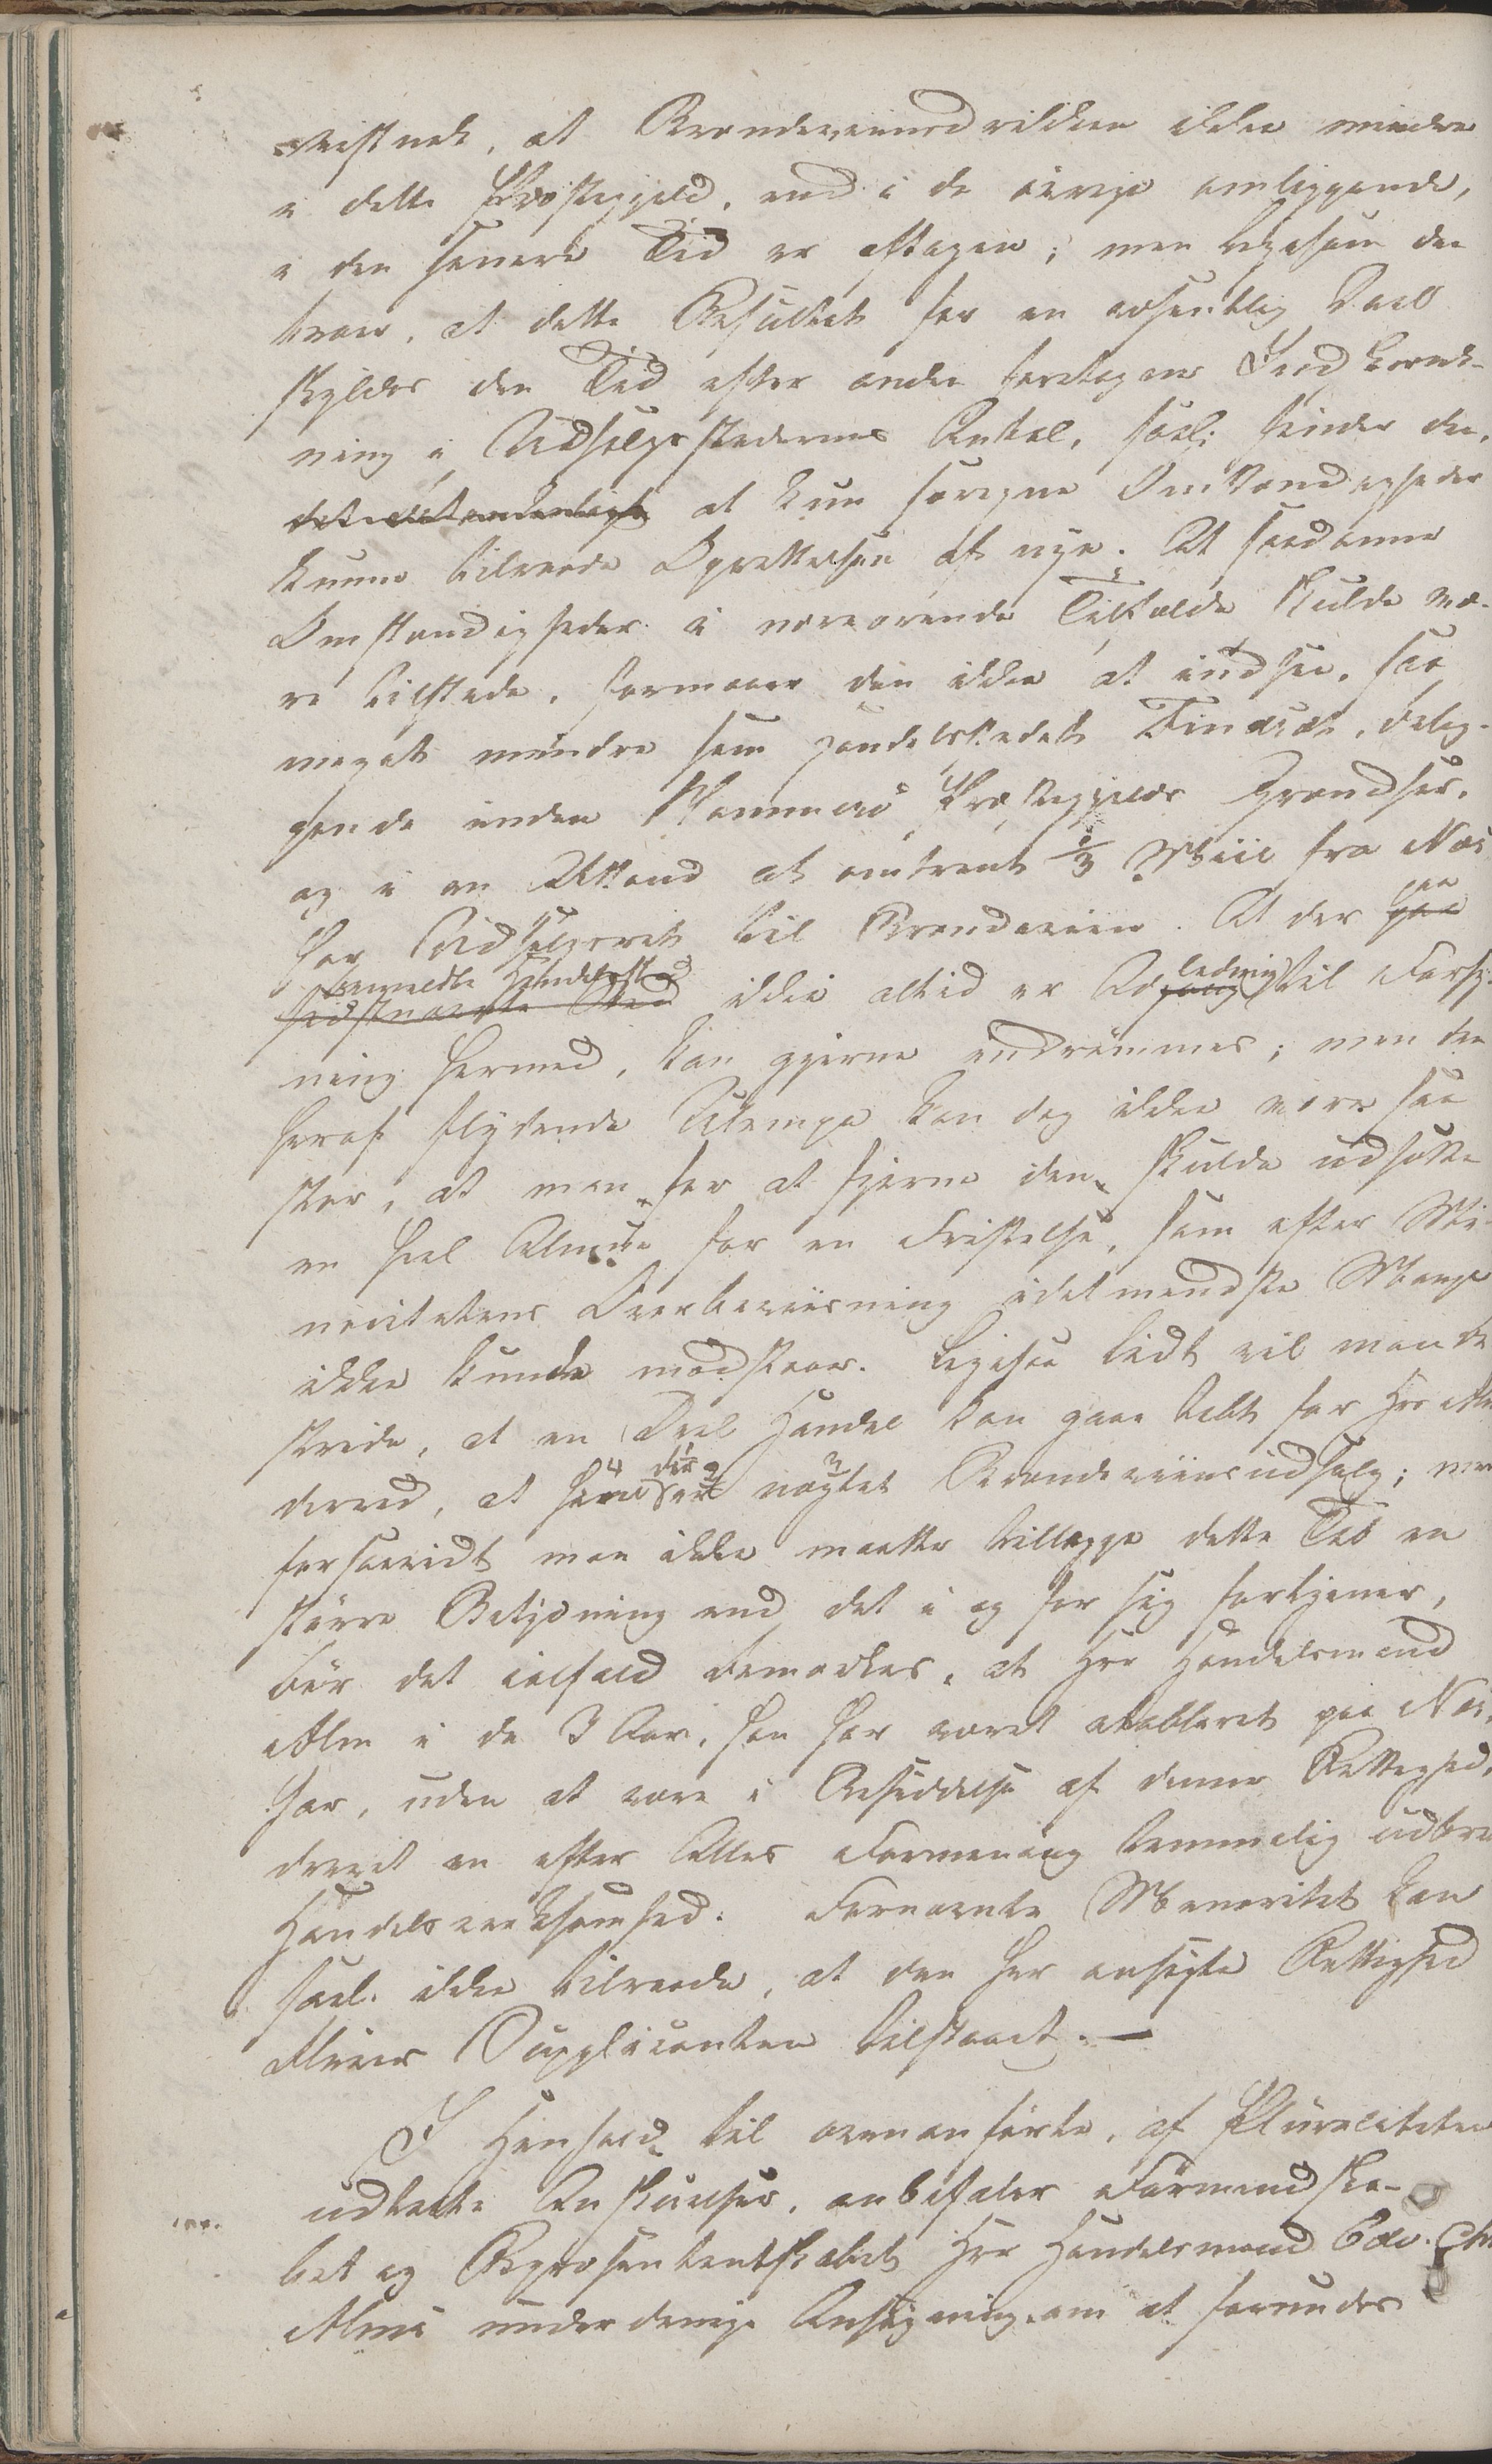 vistnok, at Brændeviinsdrikken ikke mindre
i dette Præstegjeld, end i de øvrige omliggende,
i den senere Tid er aftagen; men ligesom den
troer, at dette Resultat for en væsentlig Deel
skyldes den Tid efter anden foretagne Indskrænk-
ning i Udsalgsstedernes Antal, saal: finder den,
at kun særegne Omstændigheder
kunne tilraade Oprettelsen af nye. At saadanne
Omstændigheder i nærværende Tilfælde skulde væ-
re tilstede, formaaer den ikke at indsee, saa
meget mindre som Handelsstedet Finnøen, belig-
gende inden Præstegjelds Grændser,
og i en Afstand af omtrent 1/3 Miil fra Næs
har Udsalgsret til Brændeviin. At der paa
bemeldte Handelssted ikke altid er Adledning til Forsy-
ning hermed, kan gjerne indrømmes; men den
heraf flydende Ulempe kan dog ikke være saa
stor, at man for at fjerne den, skulde udsætte
en heel Almue for en Fristelse, som efter Mi-
noritetens Overbeviisning idetmindste Mange
ikke kunde modstaae. Ligesaa lidt vil man be-
stride, at en Deel Handel kan gaae tabt for Hr. Alm
derved, at nægtet Brændeviinsudsalg; men
forsaavidt man ikke maatte tillægge dette Tab en
større Betydning end det i og for sig fortjener,
bør det ialfald bemærkes, at Hr Handelsmand
Alm i de 3 Aar, han har været etableret paa Næs,
har, uden at være i Besiddelse af denne Rettighed,
drevet en efter Alles Formening temmelig udbredt
Handelsvirksomhed. Fornævnte Minoritet kan
saal. ikke tilraade, at den her ansøgte Rettighed
bliver Supplicanten tilstaaet. —
I Henhold til ovenanførte, af Pluraliteten
udtalte Anskuelser, anbefaler Formandska-
bet og Repræsentantskabet Hr Handelsmand Edv. Chr
Alms underdanige Ansøgning om at forundes